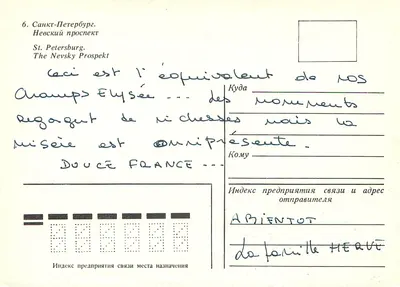 6. Санкт-Петербург.
Невский проспект
St. Petersburg.
The Nevsky Prospekt
Ceci est l'équivalent de nos
Champs Elysée ... des monuments
regorgent de richesses mais la
misère est omniprésente.
DOUCE FRANCE ...
Куда
Кому
Индекс предприятия связи и адрес
отправителя
A BIENTOT
La famille HERVE
Индекс предприятия связи места назначения